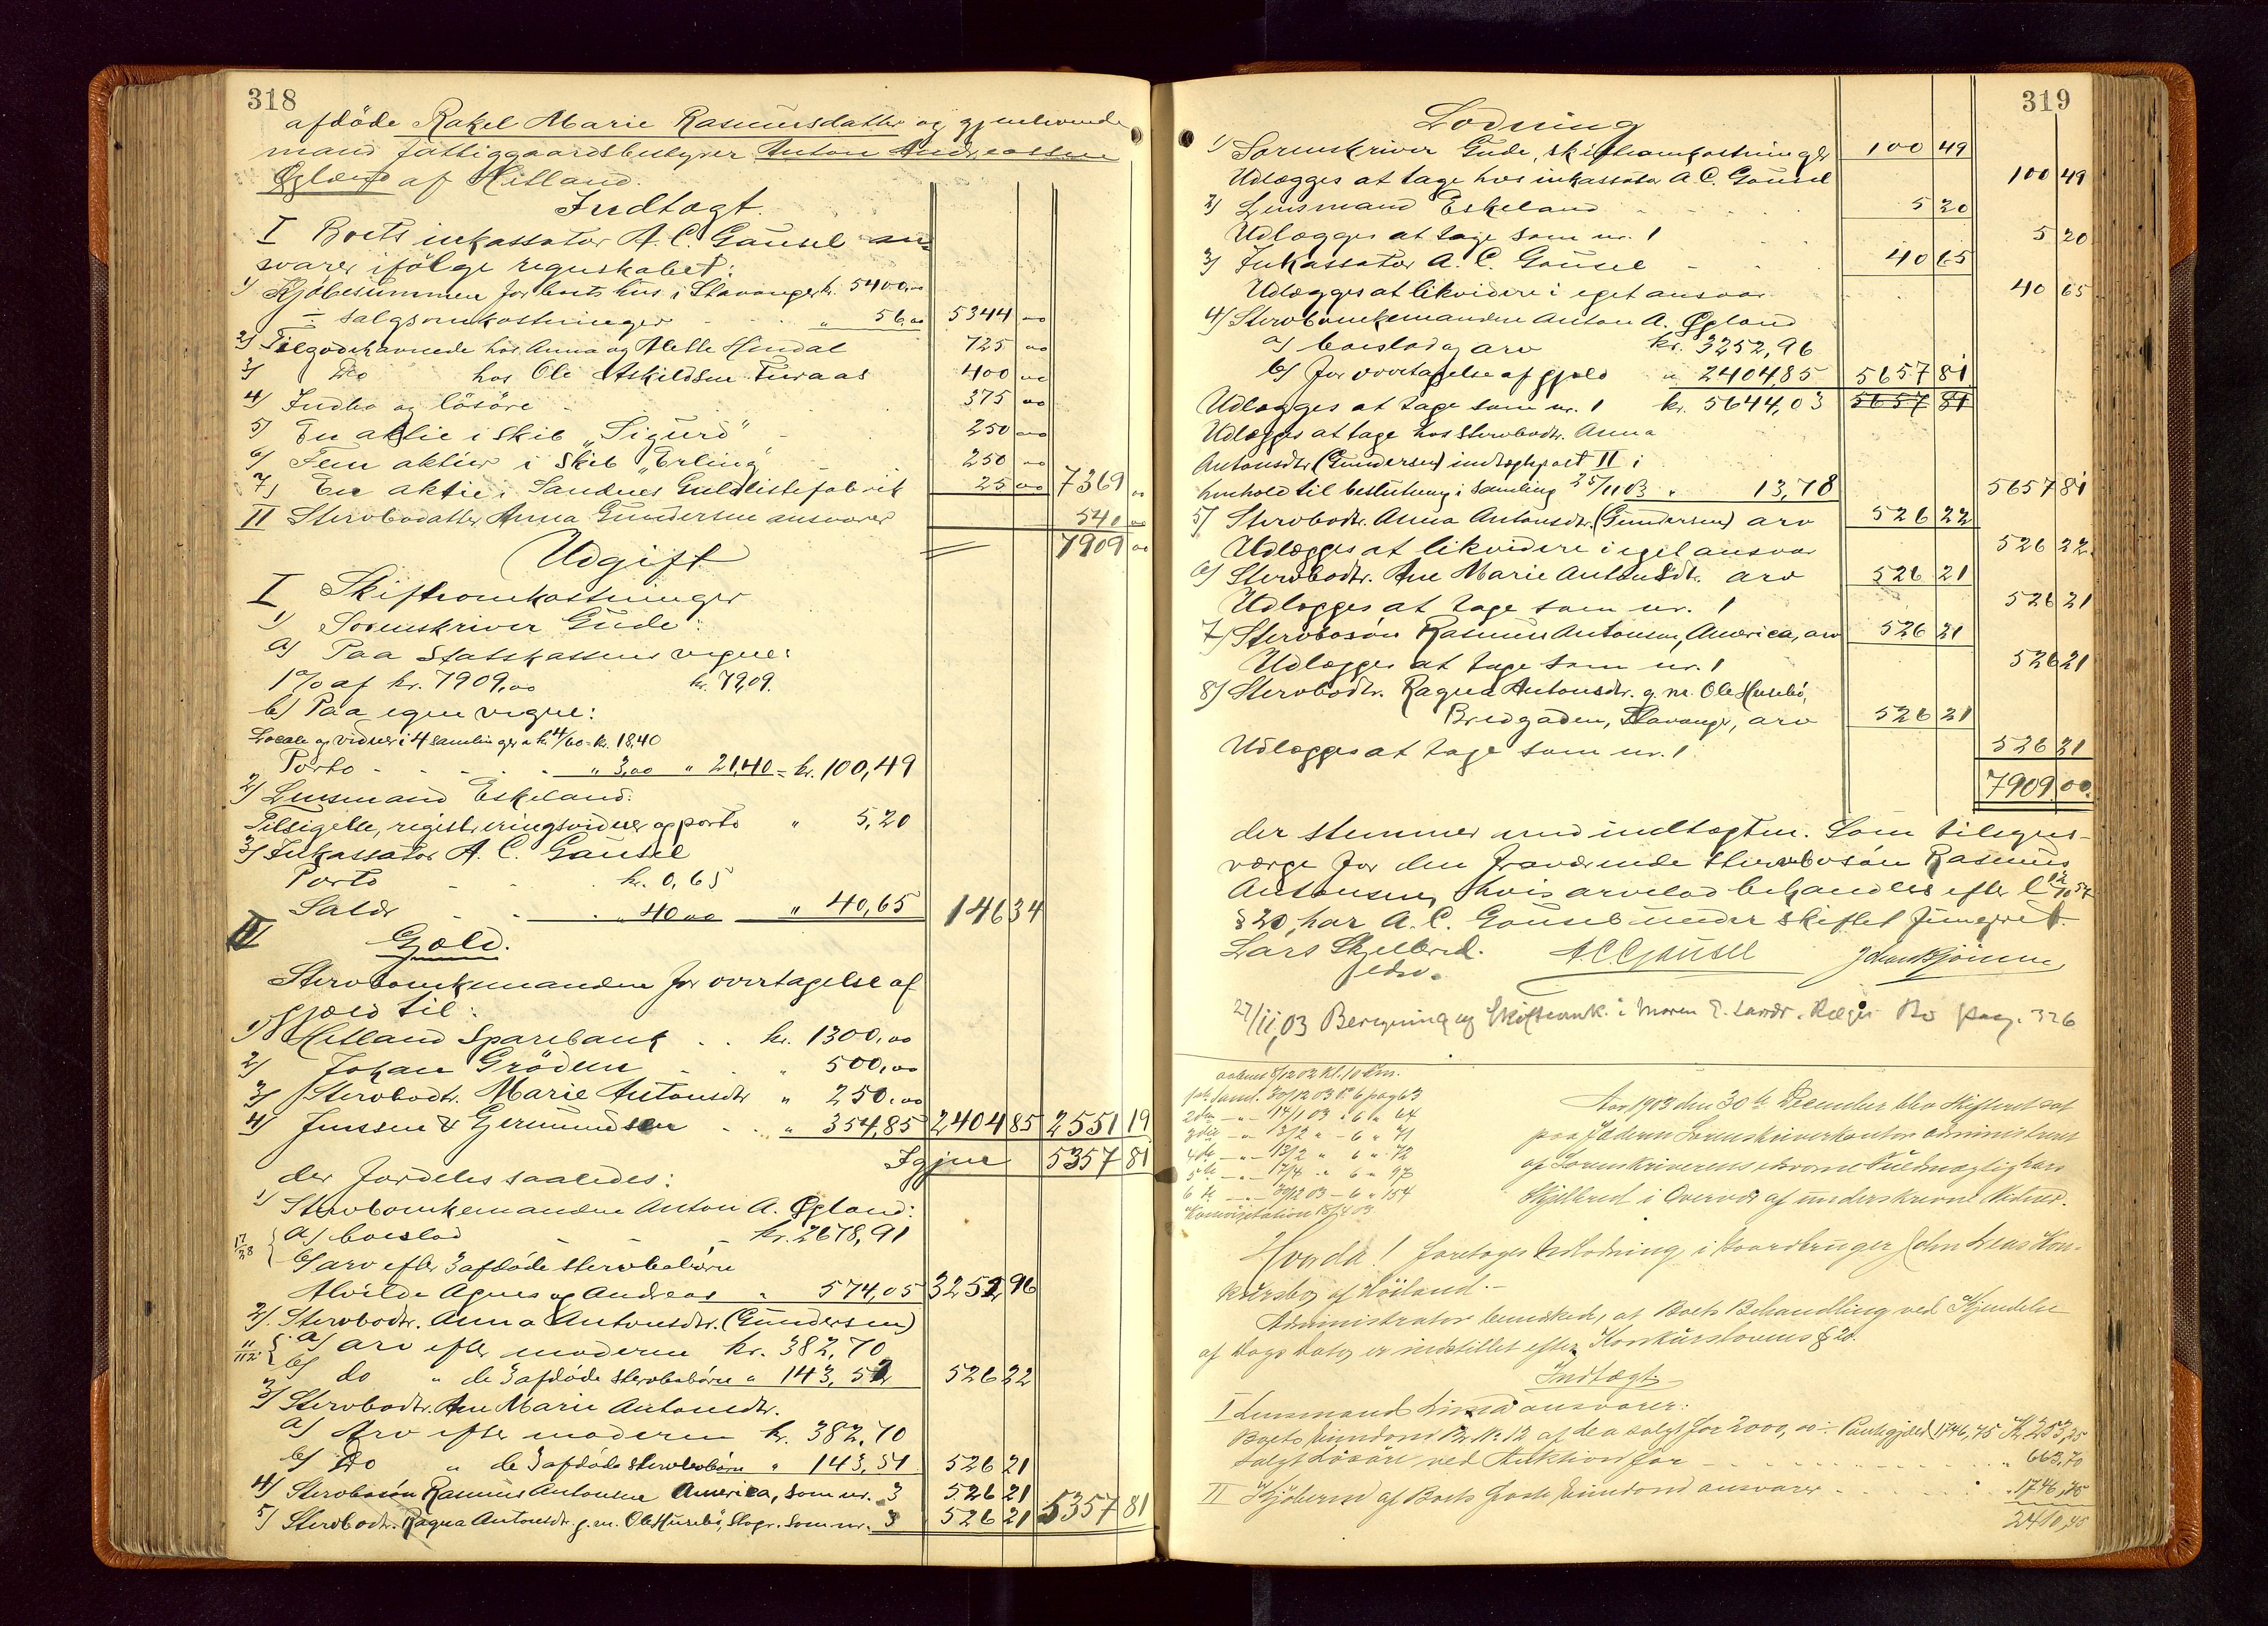 318
afdöde Rakel Marie Rasmusdatter og gjenlevende
mand fattiggaardsbestyrer Anton Andreassen
Øglænd af Hetland.
Indtægt.
I Boets inkassator A. C. Gausel an-
svarer ifölge regnskabet:
1) Kjöbesummen for boets hus i Stavanger kr. 5400,00
÷ salgsomkostninger " 56,00 5344 00
2) Tilgodehavende hos Anna og Mette Hindal 725 00
3) Do hos Ole Askildsen Turaas 400 00
4) Indbo og lösöre 375 00
5) En aktie i skib "Sigurd" 250 00
6) Fem aktier i skib "Erling" 250 00
7) En aktie i Sandnes Guldlistefabrik 25 00 7369 00
II Stervbodatter Anna Gundersen ansvarer 540 00
7909 00
Udgift
I Skifteomkostninger
1) Sorenskriver Gude:
a) Paa Statskassens vegne:
1% af kr. 7909,00 kr. 79,09.
b) Paa egne vegne:
Locale og vidner i 4 samlinger a kr 4/60 = kr. 18,40
Porto " 3,00 " 21,40 = kr. 100,49
2) Lensmand Eskeland:
Tilsigelse, registreringsvidner og porto " 5,20
3) Inkassator A. C. Gausel
Porto kr. 0,65
Salær " 40,00 " 40,65 146 34
II Gjæld.
Stervboenkemanden for overtagelse af
gjæld til:
1) Hetland Sparebank kr. 1300,00
2) Johan Gröden " 500,00
3) Stervbodtr. Marie Antonsdtr " 250,00
4) Jenssen & Gjermundsen " 354,85 2404 85 2551 19
Igjen 5357 81
der fordeles saaledes:
1) Stervboenkemanden Anton A. Øgland:
17/28 a) boeslod kr. 2678,91
b) arv efter 3 afdöde stervbobörn
Alvilde Agnes og Andreas " 574,05 3252,96
2) Stervbodtr. Anna Antonsdtr. (Gundersen)
11/112 a) arv efter moderen kr. 382,70
b) do " de 3 afdöde stervbobörn " 143,52 526 22
3) Stervbodtr. Ane Marie Antonsdtr.
a) Arv efter moderen kr. 382,70
b) Do " de 3 afdöde stervbobörn " 143,51 526 21
4) Stervbosön Rasmus Antonsen America, som nr. 3 526 21
5) Stervbodtr. Ragna Antonsdtr. g. m. Ole Husebö, Stvgr. som nr. 3 526 21 5357 81
319
Lodning
1) Sorenskriver Gude, skifteomkostninger 100 49
Udlægges at tage hos inkassator A. C. Gausel 100 49
2) Lensmand Eskeland 5 20
Udlægges at tage som nr. 1 5 20
3) Inkassator A. C. Gausel 40 65
Udlægges at likvidere i eget ansvar 40 65
4) Stervboenkemanden Anton A. Øgland
a) boeslod og arv kr. 3252,96
b) for overtagelse af gjæld " 2404,85 5657 81
Udlægges at tage som nr. 1 kr. 5644,03 5657 81
Udlægges at tage hos stervbodtr. Anna
Antonsdtr (Gundersen) indtægtspost II i
henhold til beslutning i samling 25/11 03 " 13,78 5657 81
5) Stervbodtr. Anna Antonsdtr. (Gundersen) arv 526 22
Udlægges at likvidere i eget ansvar 526 22
6) Stervbodtr. Ane Marie Antonsdtr. arv 526 21
Udlægges at tage som nr. 1 526 21
7) Stervbosön Rasmus Antonsen, America, arv 526 21
Udlægges at tage som nr. 1 526 21
8) Stervbodtr. Ragna Antonsdtr. g. m. Ole Husebö,
Bredgaden, Stavanger, arv 526 21
Udlægges at tage som nr. 1. 526 21
7909,00
der stemmer med indtægten. Som tilsyns-
værge for den fraværende stervbosön Rasmus
Antonsen, hvis arvelod behandles efter
§ 20, har A. C. Gausel under skiftet fungeret.
Lars Skjelbred. A C Gausel Johan Bjönnes
edsv.
27/11,03 Beregning og Skifteomk. i Maren Bo pag. 326
aabnet 8/12 02 Kl. 10 Fm.
1ste Saml. 30/12 03 No 6 pag 63
2den -"- 14/1 03 " 6 " 64
3die -"- 13/2 " - 6 " 71
4de -"- 13/2 " 6 " 72
5te -"- 17/4 " 6 " 97
6te -"- 30/12 03 - 6 " 154
Aar 1903 den 30te December blev Skifteret sat
paa Jæderens Sorenskriverkontor administreret
af Sorenskriverens edsvorne Fuldmægtig Lars
Skjelbred i Overvær af underskrevne Vidner.
Hvorda! foretoges Udlodning i Gaardbruger John Kon-
kursbo af Höiland.-
Administrator bemærkede, at Boets Behandling ved Kjendelse
af Dags Dato er indstillet efter Konkurslovens § 20.
Indtægt
I Lensmand ansvarer:
Boets Eiendom Br. Nr. 12 af solgt for 2000,00 ÷ Pantegjæld 1746,75 Kr 253,25
Solgt Lösöre ved Auktion for " 663,70
II Kjöberen af Boets faste Eiendom ansvarer " 1746,75